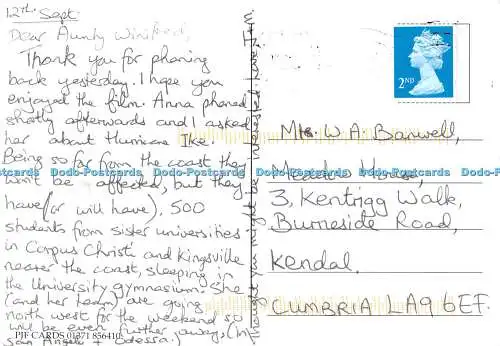 12th Sept.
Dear Aunty Winifred,
Thank you for phoning
back yesterday. I hope you
enjoyed the film. Anna phoned
shortly afterwards and I asked
her about Hurricane Ike.
Being so far from the coast they
won't be affected, but they
have (or will have), 500
students from sister universities
in Corpus Christi and Kingsville
nearer the coast, sleeping in
the University gymnasium. She
(and her team) are going
north west for the weekend so
will be even further away (in
San Angelo + Odessa).
PJF CARDS 01371 856410
thought you might be interested. Love
2ND
W.A. Barwell,
Meade House,
3, Kentrigg Walk,
Burneside Road,
Kendal.
CUMBRIA LA9 6EF.
Dodo-Postcards Dodo-Postcards Dodo-Postcards Dodo-Postcards Dodo-Postcards